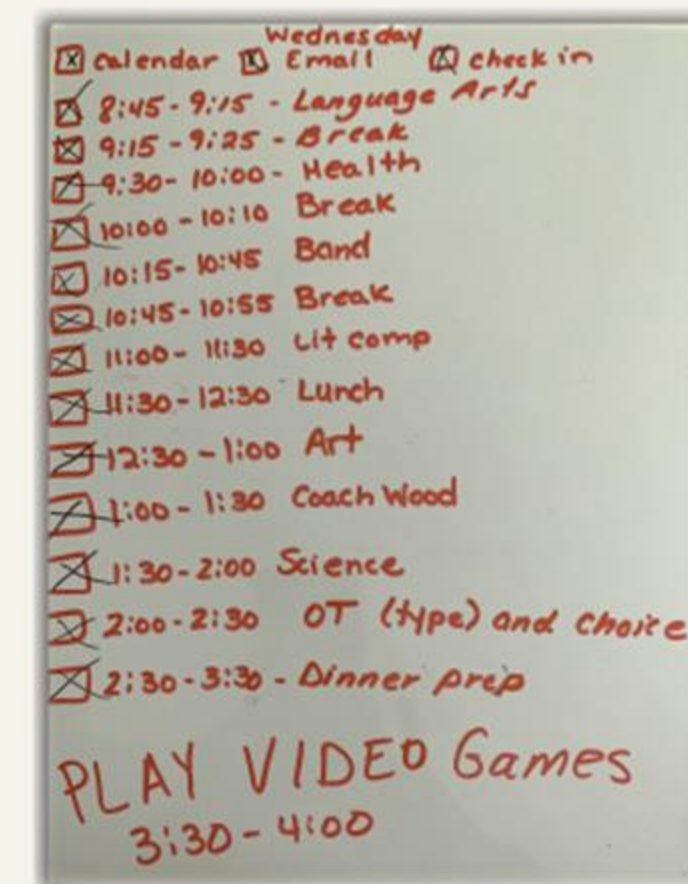 Wednesday
Calendar Email check in
8:45 - 9:15 - Language Arts
9:15 - 9:25 - Break
9:30 - 10:00 - Health
10:00 - 10:10 Break
10:15 - 10:45 Band
10:45 - 10:55 Break
11:00 - 11:30 Lit comp
11:30 - 12:30 Lunch
12:30 - 1:00 Art
1:00 - 1:30 Coach Wood
1:30 - 2:00 Science
2:00 - 2:30 OT (type) and choice
2:30 - 3:30 - Dinner prep
PLAY VIDEO Games
3:30 - 4:00